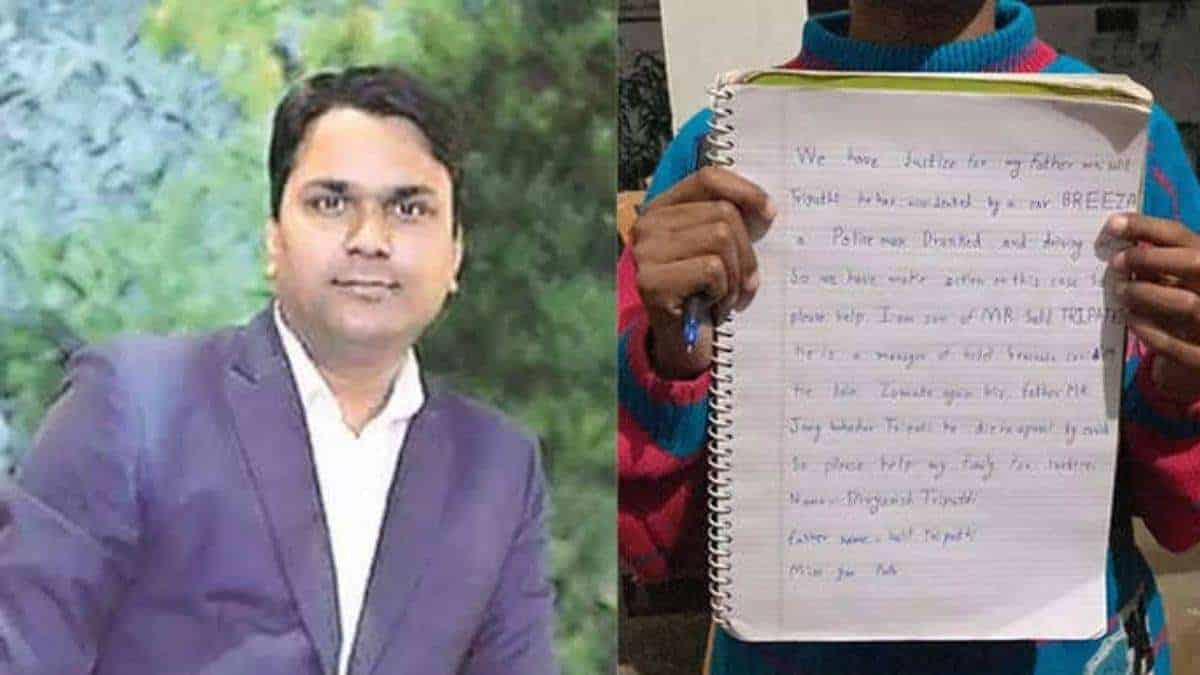 We have Justice for my father Mr. Salil
Tripathi he has accidented by a car BREEZA
a Police man Dranked and driving
So we have make action on this case So
please help. I am son of MR Salil TRIPATHI
He is a manager of hotel because covid
He Join Zomato again his father MR.
Jang bahadur Tripati he die in april by covid
So please help my family for
Name - Divyansh Tripathi
father name - Salil Tripathi
Miss you Papa